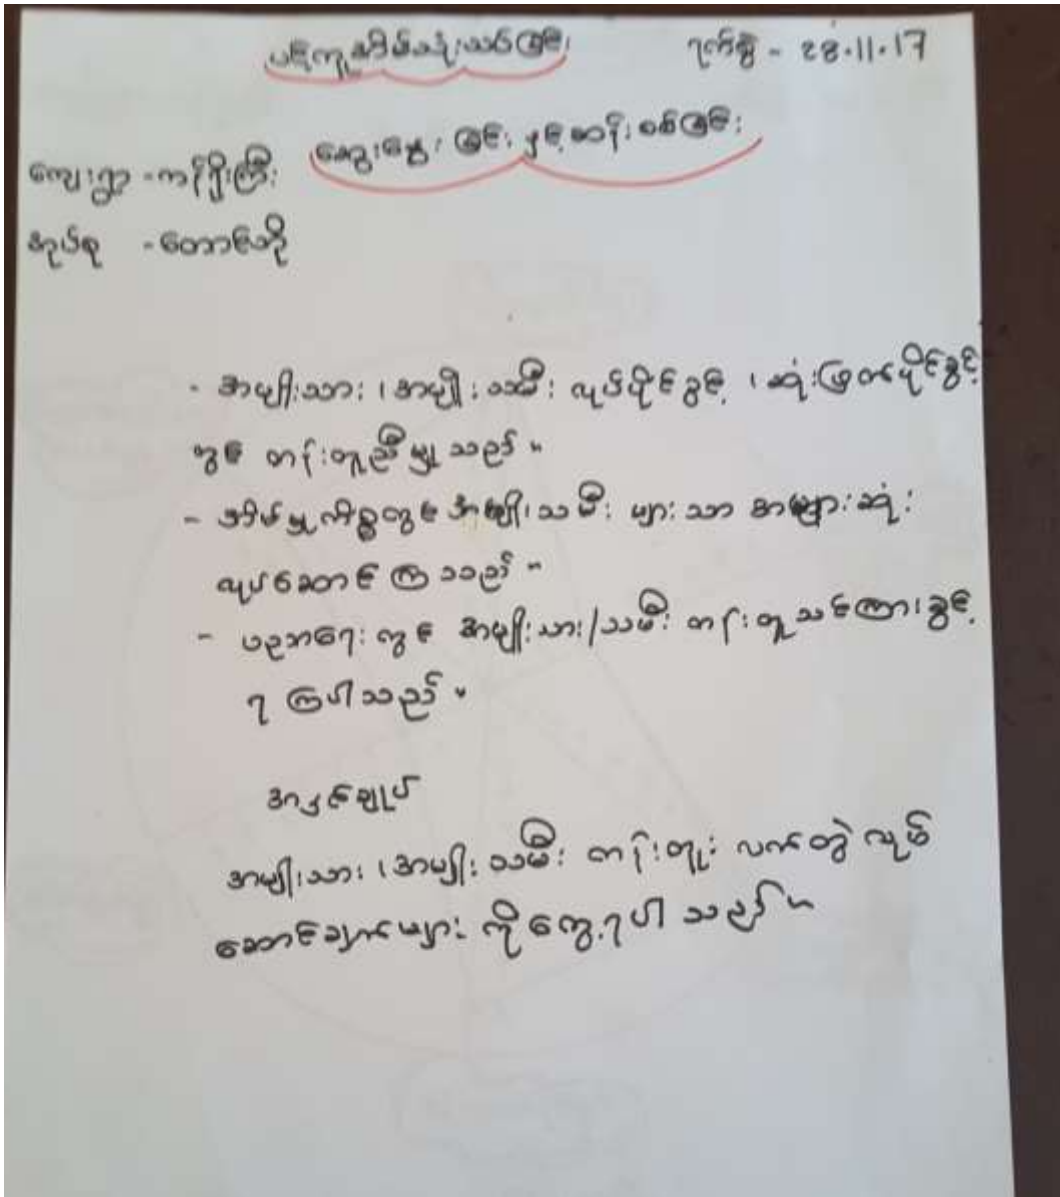 ပင့်ကူအိမ်သုံးသပ်ခြင်း ရက်စွဲ - 28.11.17
ဆွေးနွေးခြင်း နှင့် ဆန်းစစ်ခြင်း
ကျေးရွာ - ကန်ရိုးကြီး
အုပ်စု - တောင်ဘို
- အမျိုးသား ၊ အမျိုးသမီး လုပ်ပိုင်ခွင့် ၊ ဆုံးဖြတ်ပိုင်ခွင့်
တွင် တန်းတူညီမျှ သည်။
- အိမ်မှုကိစ္စတွင် အမျိုးသမီး များသာ အများဆုံး
လုပ်ဆောင်ကြ သည်။
- ပညာရေး တွင် အမျိုးသား/သမီး တန်းတူ သင်ကြားခွင့်
ရကြပါသည်။
အနှစ်ချုပ်
အမျိုးသား ၊ အမျိုးသမီး တန်းတူ လက်တွဲ လုပ်
ဆောင်ချက်များ ကို တွေ့ရပါ သည်။